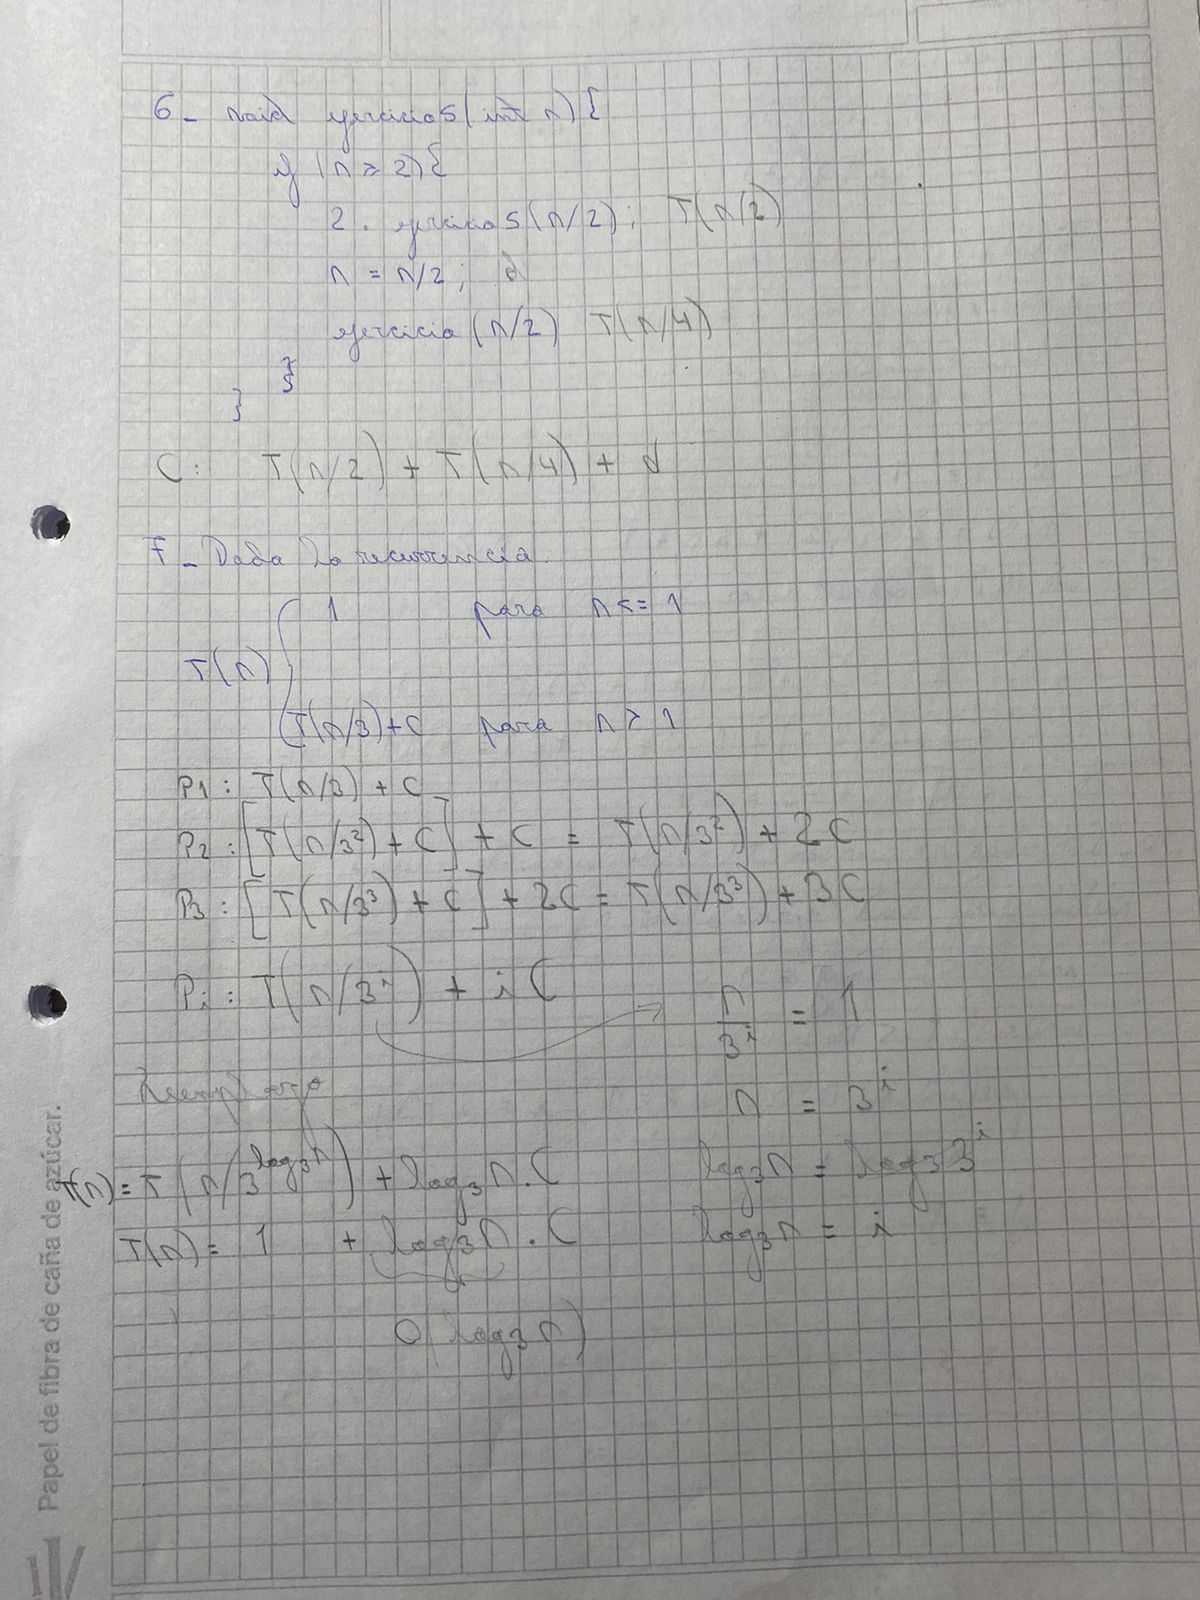 6- void ejercicio5(int n) {
if (n >= 2) {
2. ejercicio5(n/2); T(n/2)
n = n/2; d
ejercicio(n/2) T(n/4)
}
}
C: T(n/2) + T(n/4) + d
7- Dada la recurrencia.
1 para n <= 1
T(n) {
T(n/3)+C para n > 1
P1: T(n/3) + C
P2: [T(n/3²) + C] + C = T(n/3²) + 2C
P3: [T(n/3³) + C] + 2C = T(n/3³) + 3C
Pi: T(n/3^i) + i C
n/3^i = 1
n = 3^i
log₃n = log₃3^i
log₃n = i
Reemplazo
T(n) = T(n/3^log₃n) + log₃n . C
T(n) = 1 + log₃n . C
O(log₃n)
Papel de fibra de caña de azúcar.